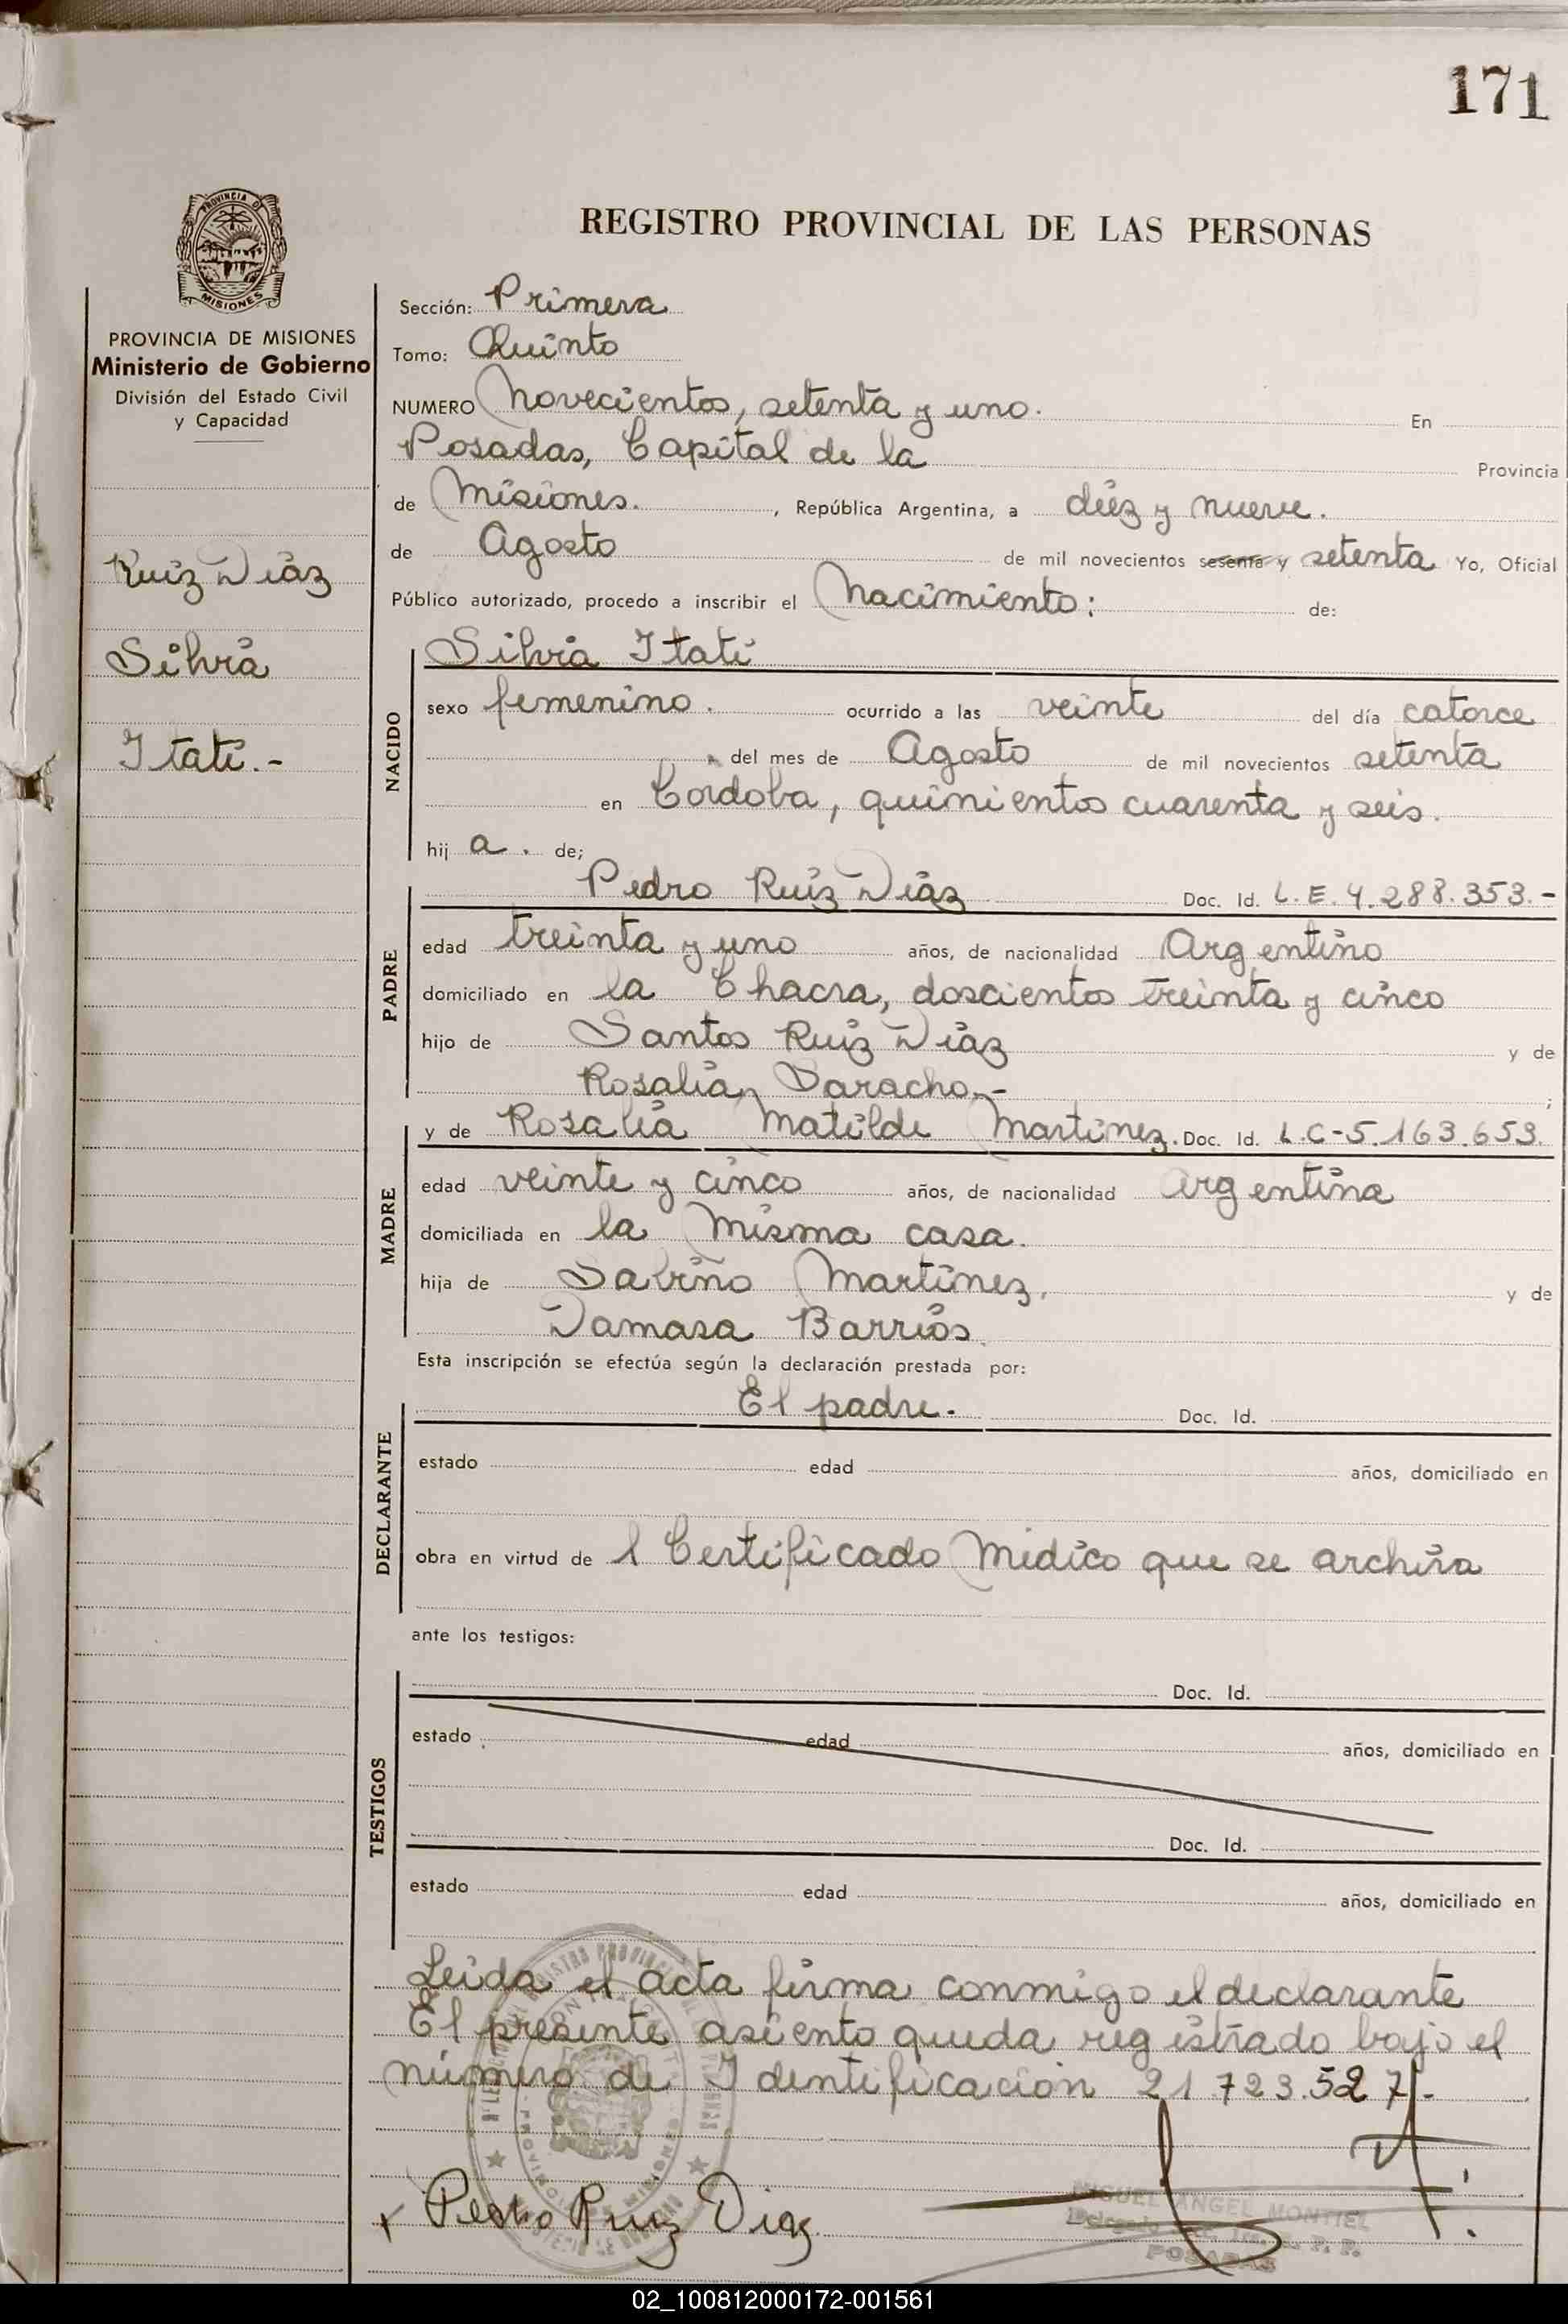 171
PROVINCIA DE
MISIONES
REGISTRO PROVINCIAL DE LAS PERSONAS
PROVINCIA DE MISIONES
Ministerio de Gobierno
División del Estado Civil
y Capacidad
Ruiz Diaz
Silvia
Itatí.-
Sección: Primera
Tomo: Quinto
NUMERO Novecientos, setenta y uno. En
Posadas, Capital de la Provincia
de Misiones. , República Argentina, a diez y nueve.
de Agosto de mil novecientos sesenta y setenta Yo, Oficial
Público autorizado, procedo a inscribir el Nacimiento: de:
NACIDO
Silvia Itatí
sexo femenino. ocurrido a las veinte del día catorce
del mes de Agosto de mil novecientos setenta
en Córdoba, quinientos cuarenta y seis.
hij a. de;
PADRE
Pedro Ruiz Diaz Doc. Id. L.E. 4.288.353.-
edad treinta y uno años, de nacionalidad Argentino
domiciliado en la Chacra, doscientos treinta y cinco
hijo de Santos Ruiz Diaz y de
Rosalia Saracho.- ;
MADRE
y de Rosalia Matilde Martinez. Doc. Id. L.C-5.163.653.
edad veinte y cinco años, de nacionalidad Argentina
domiciliada en la misma casa.
hija de Sabino Martinez, y de
Damasa Barrios.
Esta inscripción se efectúa según la declaración prestada por:
DECLARANTE
El padre. Doc. Id.
estado edad años, domiciliado en
obra en virtud de l Certificado Médico que se archiva
ante los testigos:
TESTIGOS
Doc. Id.
estado edad años, domiciliado en
Doc. Id.
estado edad años, domiciliado en
Leida el acta firma conmigo el declarante
El presente asiento queda registrado bajo el
número de Identificación 21.723.527.-
x Pedro Ruiz Diaz
MIGUEL ANGEL MONTIEL
POSADAS
02_100812000172-001561